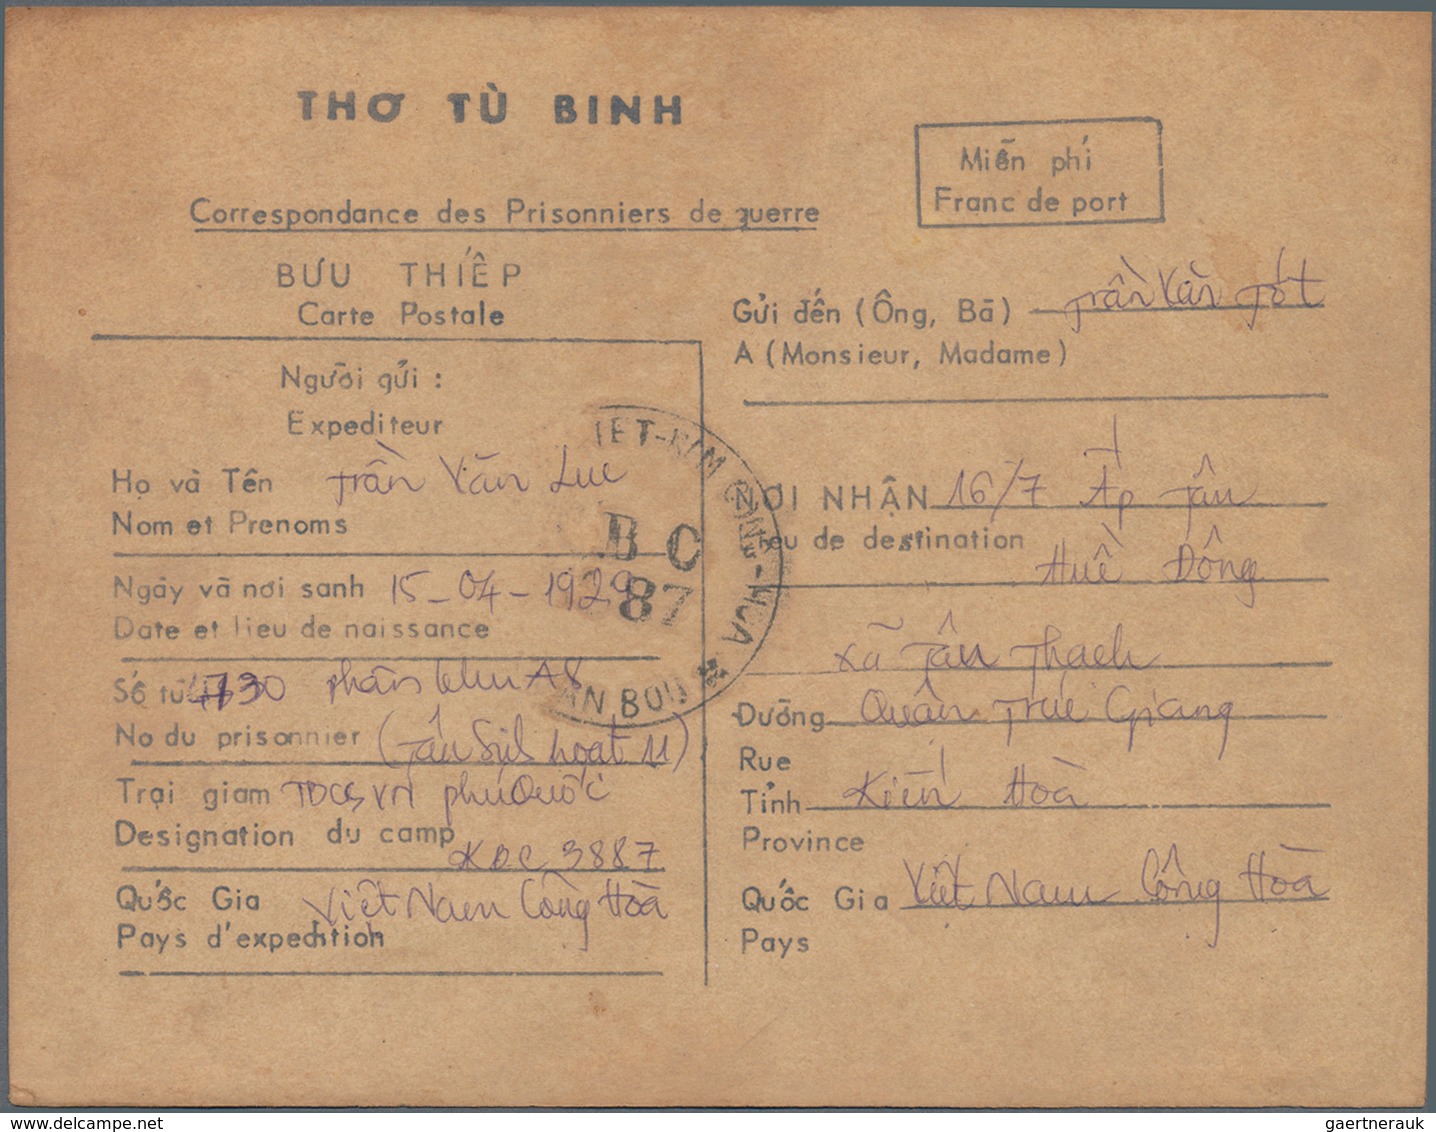 THƠ TÙ BINH
Correspondance des Prisonniers de guerre
BƯU THIẾP
Carte Postale
Miễn phí
Franc de port
Người gửi :
Expediteur
Họ và Tên Trần Văn Luc
Nom et Prenoms
Ngày và nơi sanh 15-04-1929
Date et lieu de naissance
Số tù 4730 phân khu A8
No du prisonnier (Tân Sinh hoạt 11)
Trại giam TBCSVN phú Quốc
Designation du camp
KBC 3887
Quốc Gia Việt Nam Cộng Hòa
Pays d'expedition
IET-NAM CỘNG-HÒA
BC
87
AN BƯU
Gửi đến (Ông, Bà) Trần Văn Tốt
A (Monsieur, Madame)
NƠI NHẬN 16/7 Ấp Tân
Lieu de destination
Huề Đông
Xã Tân Thạch
Đường Quận Trúc Giang
Rue
Tỉnh Kiến Hòa
Province
Quốc Gia Việt Nam Cộng Hòa
Pays
delcampe.net
gaertnerauk